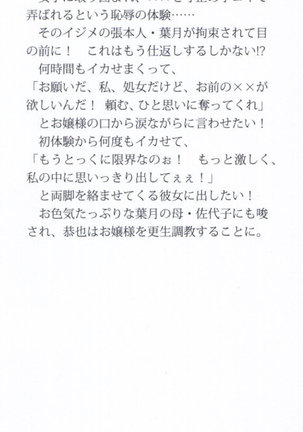 弄ばれるという恥辱の体験……
そのイジメの張本人・葉月が拘束されて目
の前に！　これはもう仕返しするしかない!?
何時間もイカせまくって、
「お願いだ、私、処女だけど、お前の××が
欲しいんだ！ 頼む、ひと思いに奪ってくれ」
とお嬢様の口から涙ながらに言わせたい！
初体験から何度もイカせて、
「もうとっくに限界なのぉ！　もっと激しく、
私の中に思いっきり出してぇぇ！」
と両脚を絡ませてくる彼女に出したい！
お色気たっぷりな葉月の母・佐代子にも唆
され、恭也はお嬢様を更生調教することに。